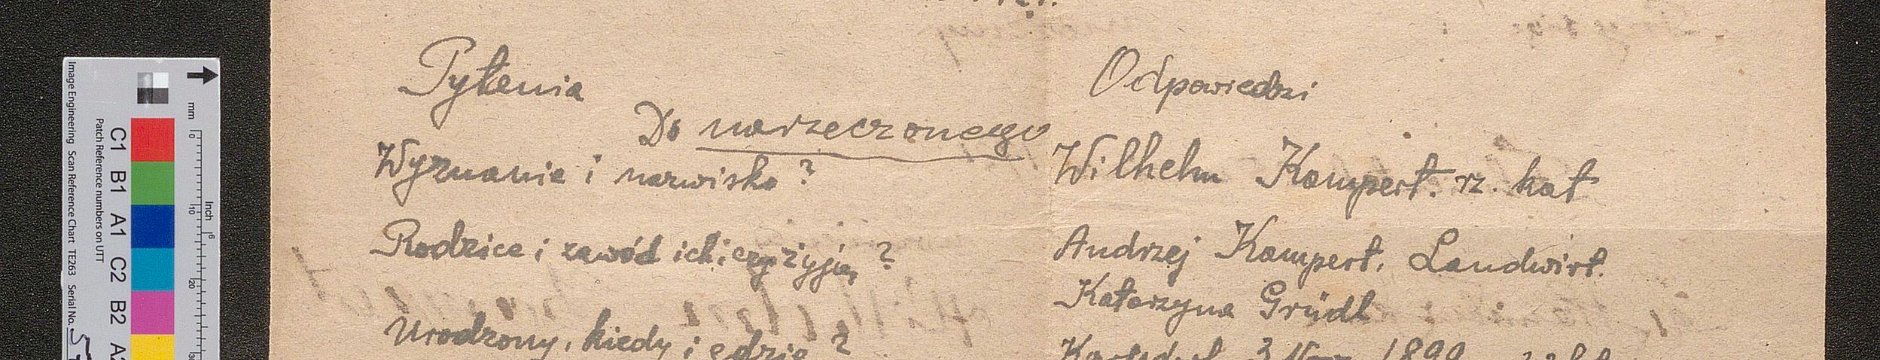 Pytenia
Odpowiedzi
Do narzeczonego
Wyznanie i nazwisko?
Wilhelm Kampert. rz. kat
Rodzice i zawód ich i czy żyją?
Andrzej Kampert. Landwirt.
Katarzyna Gründl
Urodzony, kiedy i gdzie?
3 Nov. 1899
Image Engineering Scan Reference Chart TE263 Serial No.
Patch Reference numbers on UTT
C1 B1 A1 C2 B2 A2
mm
Inch